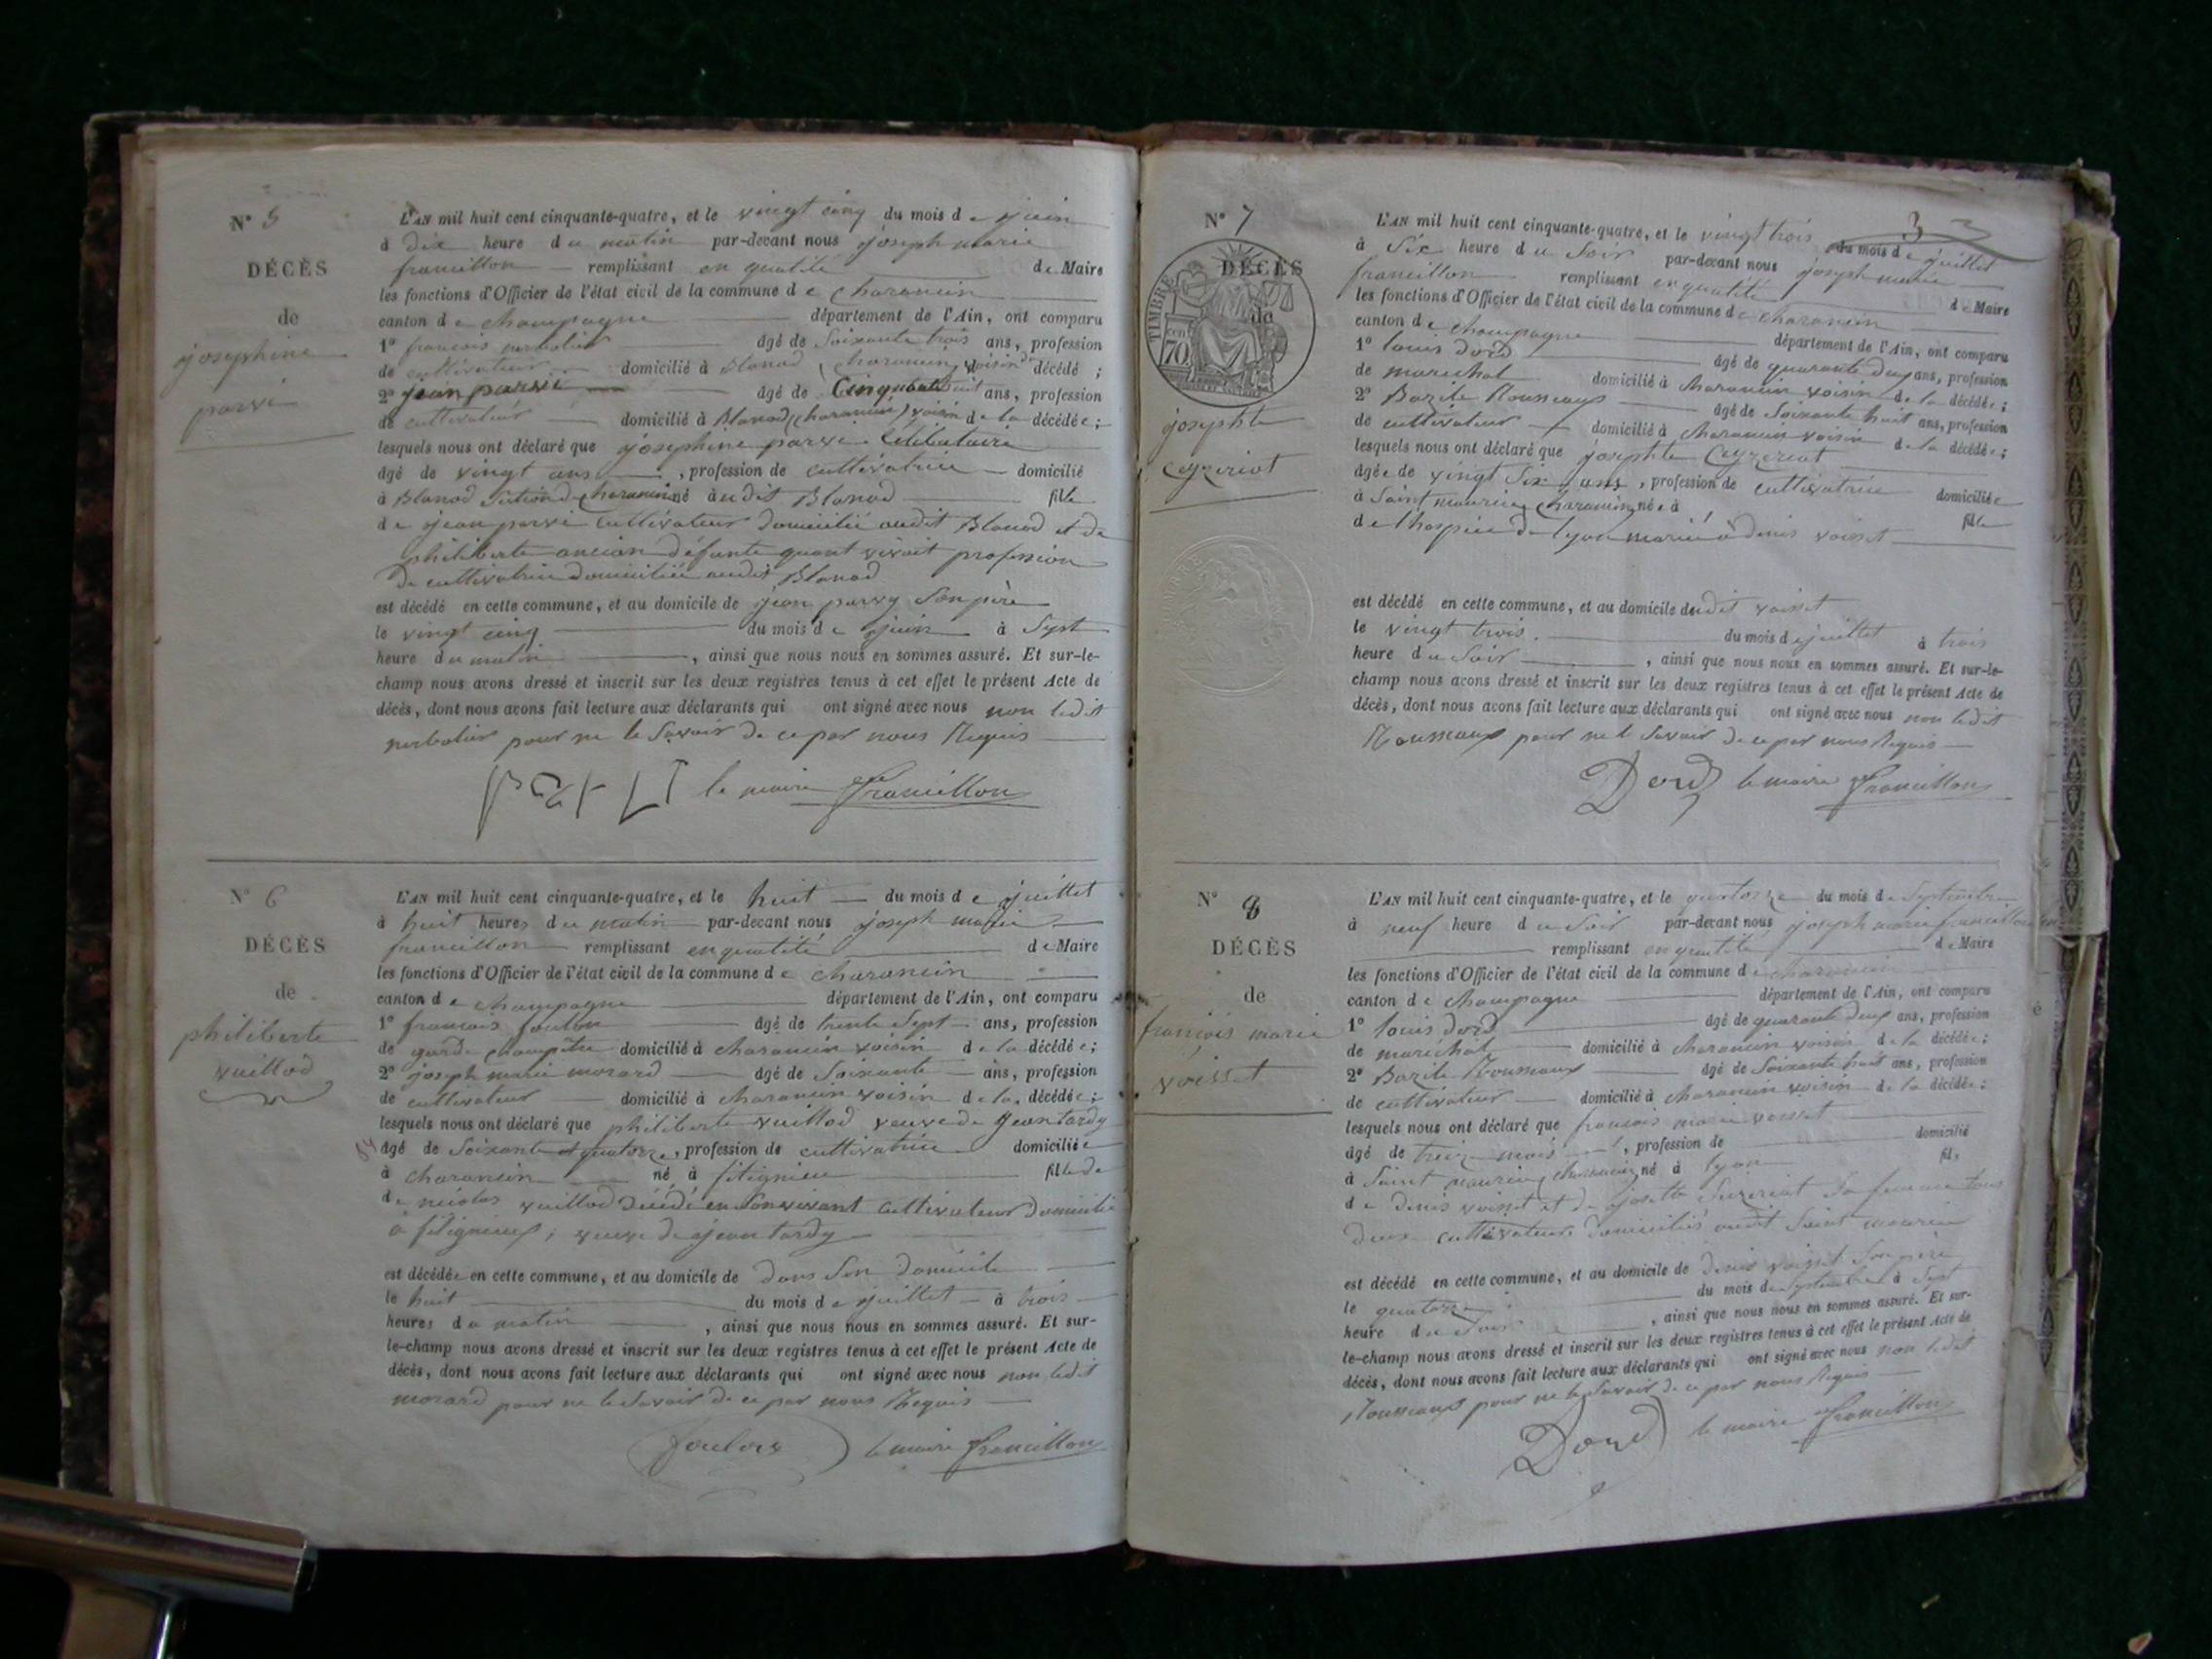 N° 5
DÉCÈS
de
josephine
parvi
L'AN mil huit cent cinquante-quatre, et le vingt cinq du mois de juin
à dix heure du matin par-devant nous joseph marie
francillon remplissant en qualité de Maire
les fonctions d'Officier de l'état civil de la commune de charancin
canton de champagne département de l'Ain, ont comparu
1° francois âgé de soixante trois ans, profession
de cultivateur domicilié à Blanod, charancin, voisin décédé ;
2° jean parvi âgé de Cinquante huit ans, profession
de cultivateur domicilié à Blanod (charancin) voisin de la décédée ;
lesquels nous ont déclaré que josephine parvi Célibataire
âgé de vingt ans, profession de cultivatrice domicilié
à Blanod Section de charancin né audit Blanod fille
de jean parvi cultivateur domicilié audit Blanod et de
philiberte ancian défunte quant vivait profession
de cultivatrice domiciliée audit Blanod
est décédé en cette commune, et au domicile de jean parvy son père
le vingt cinq du mois de juin à sept
heure du matin, ainsi que nous nous en sommes assuré. Et sur-le-
champ nous avons dressé et inscrit sur les deux registres tenus à cet effet le présent Acte de
décès, dont nous avons fait lecture aux déclarants qui ont signé avec nous non ledit
pour ne le savoir de ce par nous Requis
le maire Francillon
N° 6
DÉCÈS
de
philiberte
vuillod
L'AN mil huit cent cinquante-quatre, et le huit du mois de juillet
à huit heures du matin par-devant nous joseph marie
francillon remplissant en qualité de Maire
les fonctions d'Officier de l'état civil de la commune de charancin
canton de champagne département de l'Ain, ont comparu
1° francois foulon âgé de trente sept ans, profession
de garde champêtre domicilié à charancin voisin de la décédée;
2° joseph marie morard âgé de soixante ans, profession
de cultivateur domicilié à charancin voisin de la décédée;
lesquels nous ont déclaré que philiberte vuillod veuve de Jean tardy
âgé de soixante et quatorze, profession de cultivatrice domiciliée
à charancin né à fitignieu fille de
de nicolas vuillod décédé en son vivant cultivateur domicilié
à fitignieux, veuve de jean tardy
est décédée en cette commune, et au domicile de dans son domicile
le huit du mois de juillet à trois
heures du matin, ainsi que nous nous en sommes assuré. Et sur-
le-champ nous avons dressé et inscrit sur les deux registres tenus à cet effet le présent Acte de
décès, dont nous avons fait lecture aux déclarants qui ont signé avec nous non ledit
morard pour ne le savoir de ce par nous Requis
le maire Francillon
3
N° 7
DÉCÈS
de
TIMBRE
70
josephte
ceyzeriat
L'AN mil huit cent cinquante-quatre, et le vingt trois du mois de juillet
à six heure du soir par-devant nous joseph marie
francillon remplissant en qualité de Maire
les fonctions d'Officier de l'état civil de la commune de charancin
canton de champagne département de l'Ain, ont comparu
1° louis dord âgé de quarante deux ans, profession
de marechal domicilié à charancin voisin de la décédée;
2° Bazile Rousseaux âgé de soixante huit ans, profession
de cultivateur domicilié à charancin voisin de la décédée;
lesquels nous ont déclaré que josephte Ceyzeriat
âgée de vingt six ans, profession de cultivatrice domiciliée
à Saint maurice, charancin, née à fille
de l'hospice de lyon mariée à denis voisset
est décédé en cette commune, et au domicile dudit voisset
le vingt trois du mois de juillet à trois
heure du soir, ainsi que nous nous en sommes assuré. Et sur-le-
champ nous avons dressé et inscrit sur les deux registres tenus à cet effet le présent Acte de
décès, dont nous avons fait lecture aux déclarants qui ont signé avec nous non ledit
Rousseaux pour ne le savoir de ce par nous Requis
Dord le maire Francillon
N° 8
DÉCÈS
de
francois marie
voisset
L'AN mil huit cent cinquante-quatre, et le quatorze du mois de Septembre
à neuf heure du soir par-devant nous joseph marie francillon
remplissant en qualité de Maire
les fonctions d'Officier de l'état civil de la commune de charancin
canton de champagne département de l'Ain, ont comparu
1° louis dord âgé de quarante deux ans, profession
de maréchal domicilié à charancin voisin de la décédée;
2° Bazile Rousseaux âgé de soixante huit ans, profession
de cultivateur domicilié à charancin voisin de la décédée;
lesquels nous ont déclaré que francois marie voisset
âgé de treize mois, profession de domicilié
à Saint maurice, charancin, né à lyon fils
de denis voisset et de josette Sezeriat sa femme tous
deux cultivateurs domiciliés audit Saint maurice
est décédé en cette commune, et au domicile de denis voisset son père
le quatorze du mois de septembre à sept
heure du soir, ainsi que nous nous en sommes assuré. Et sur-
le-champ nous avons dressé et inscrit sur les deux registres tenus à cet effet le présent Acte de
décès, dont nous avons fait lecture aux déclarants qui ont signé avec nous non ledit
Rousseaux pour ne le savoir de ce par nous Requis
Dord le maire Francillon